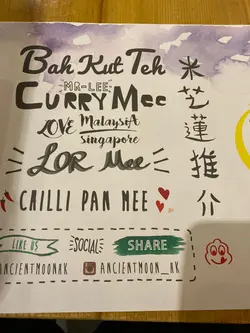 Bah Kut Teh
MR-LEE
CURRY Mee
LOVE Malaysia
singapore
LOR Mee
CHILLI PAN MEE
米芝蓮推介
LIKE US SOCIAL SHARE
ANCIENTMOONHK ANCIENTMOON_HK